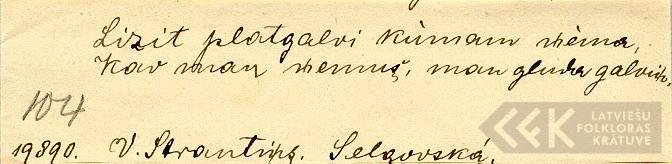 Lizit platgalvi kūmam ņēma,
Kav man ņemuš, man gluda
104
19890. V. Strantiņš. Selgovskā.
LATVIEŠU
FOLKLORAS
KRĀTUVE